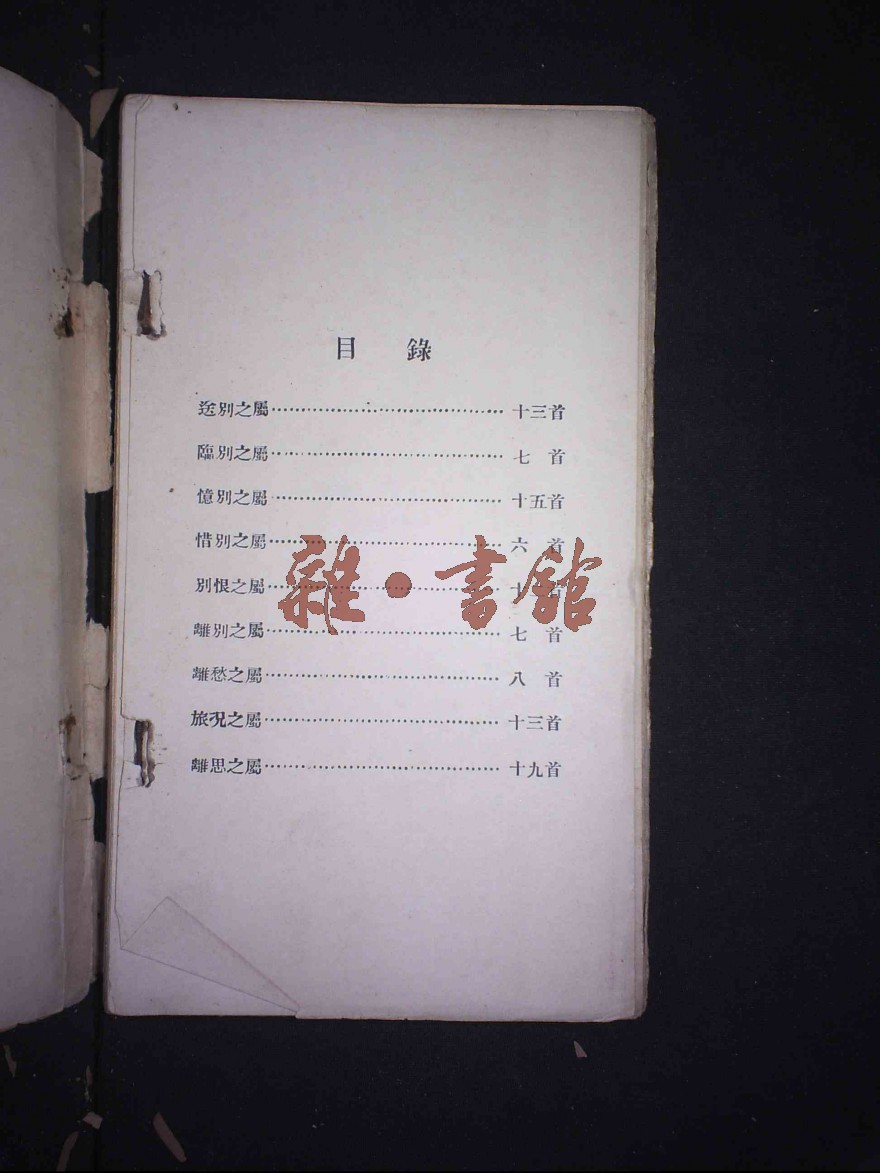 目 錄
送別之屬……………………………… 十三首
臨別之屬……………………………… 七 首
憶別之屬……………………………… 十五首
惜別之屬……………………………… 六 首
別恨之屬……………………………… 首
離別之屬……………………………… 七 首
離愁之屬……………………………… 八 首
旅況之屬……………………………… 十三首
離思之屬……………………………… 十九首
雜·書館